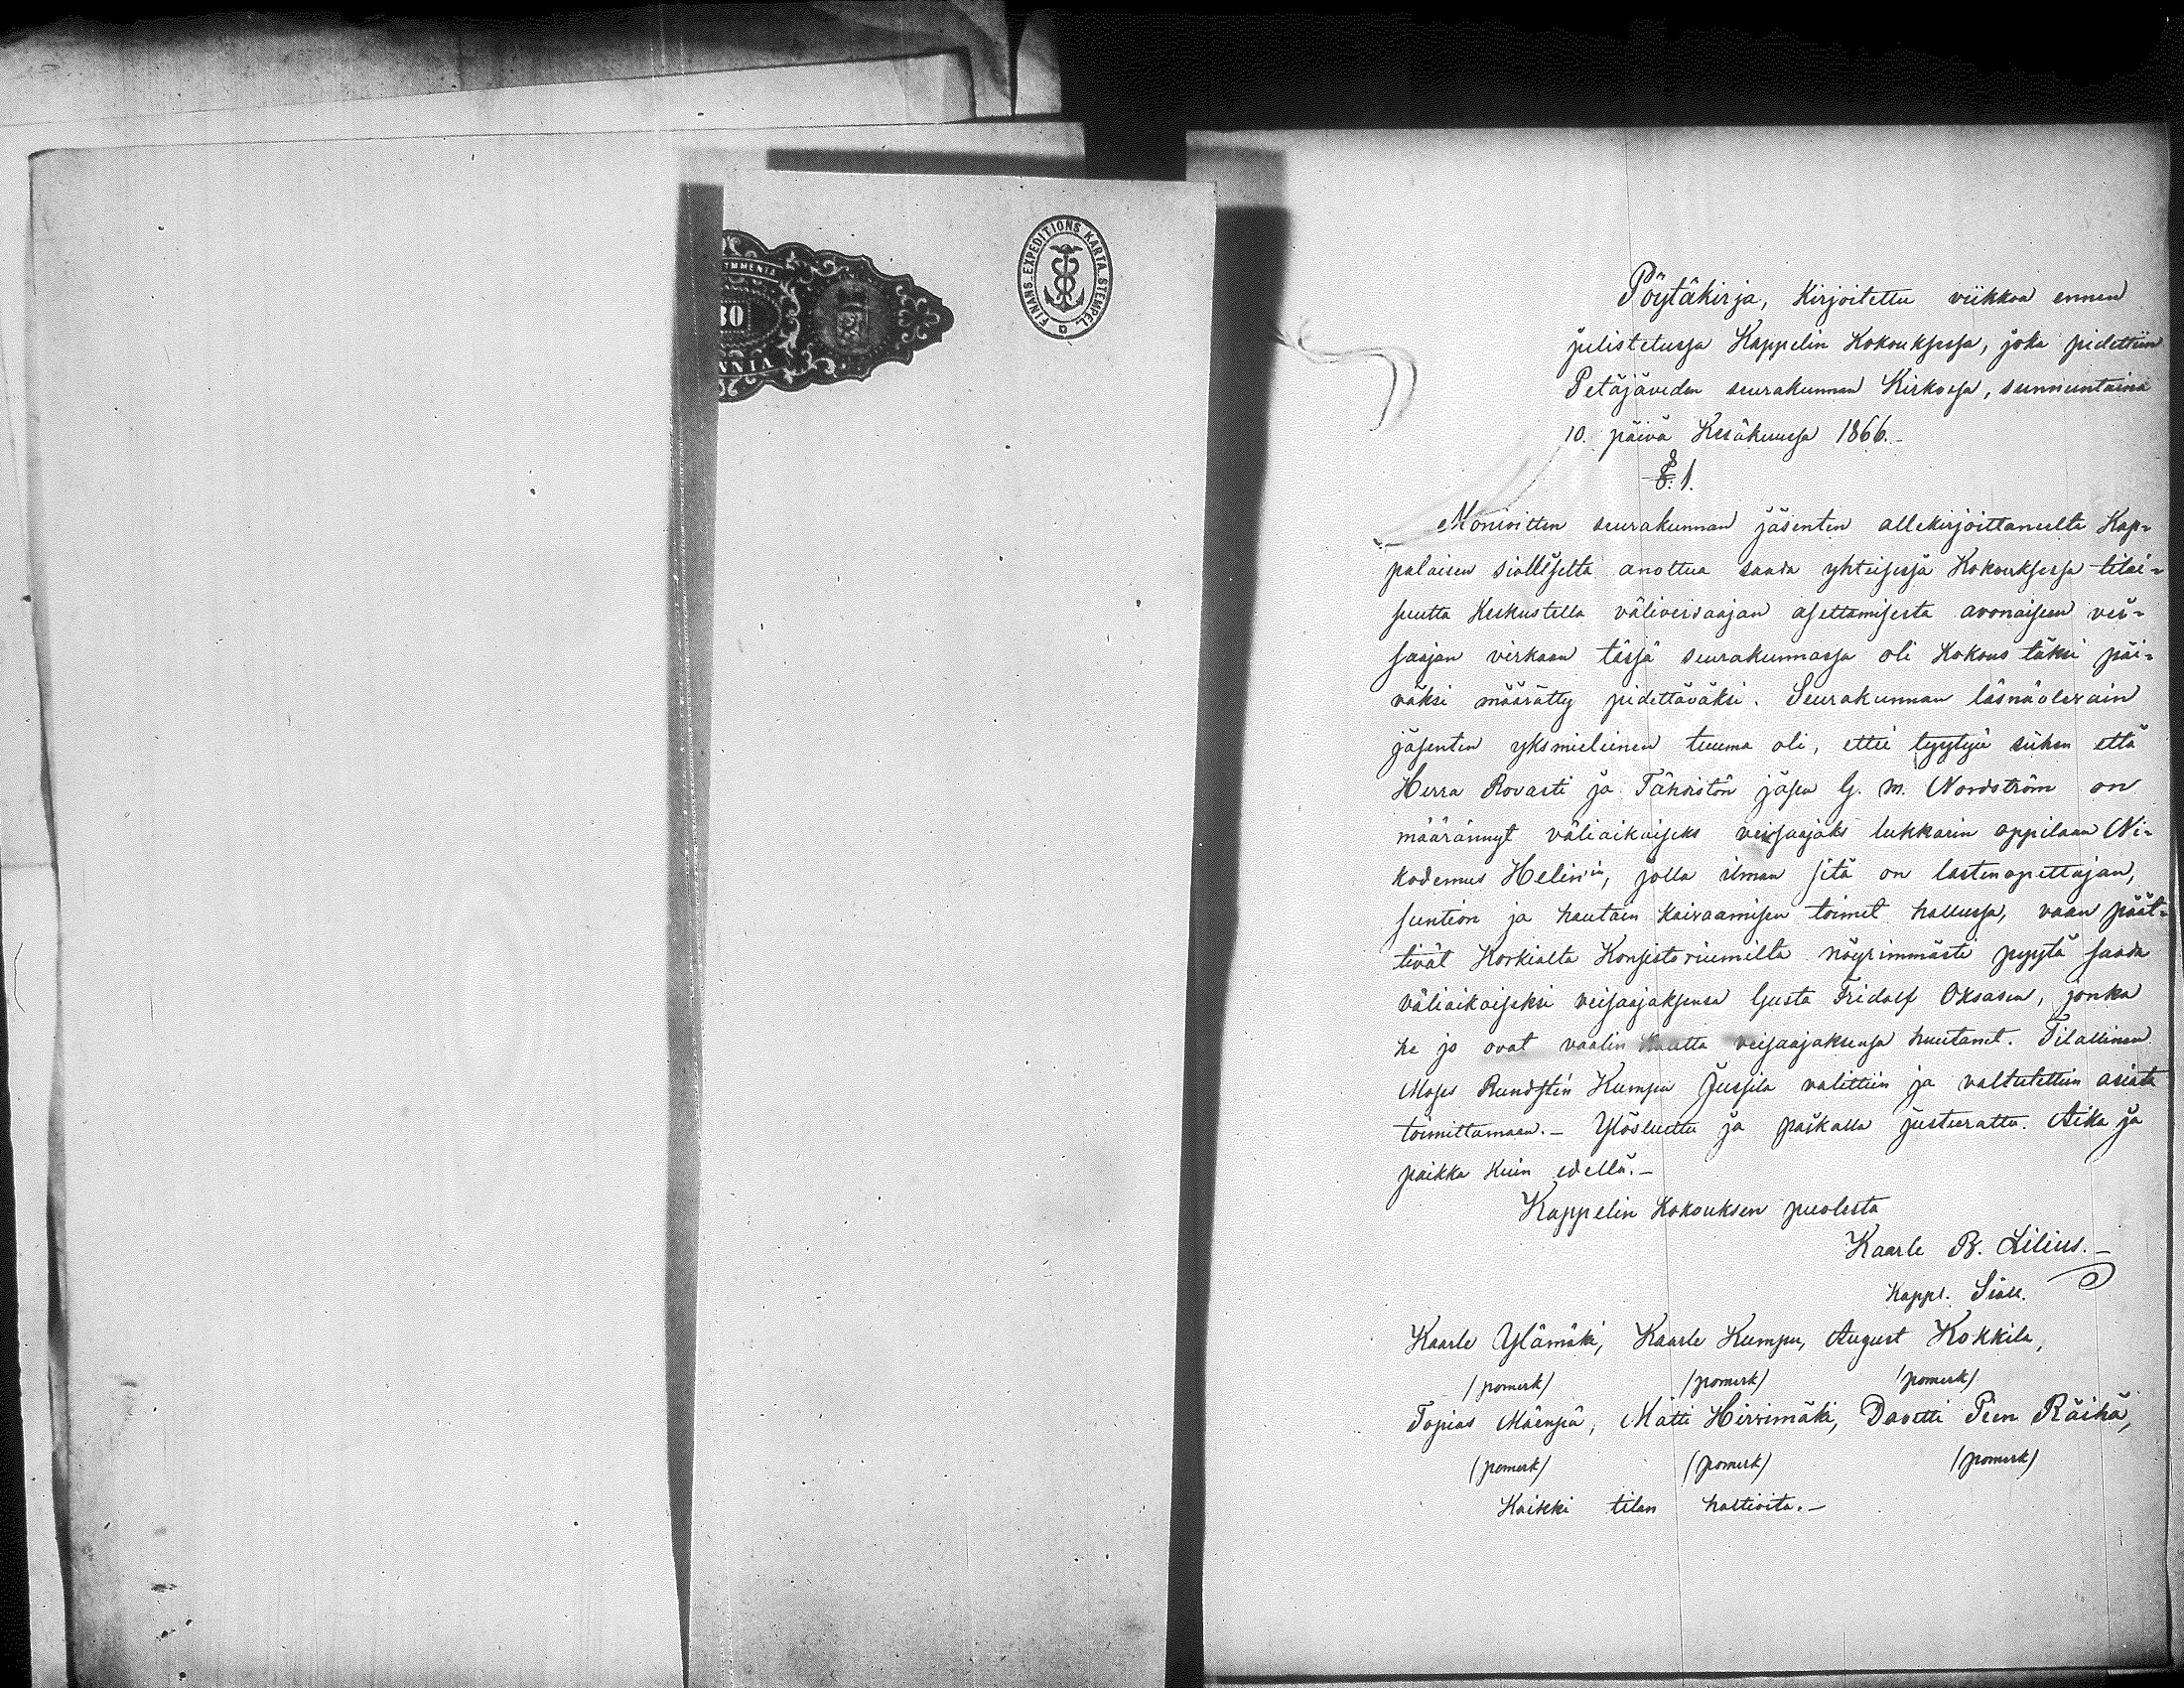 FINANS-EXPEDITIONS KARTA STEMPEL
30
NNIA
Pöytäkirja, Kirjoitettu viikkoa ennen
julistetussa Kappelin Kokouksessa, joka pidettiin
Petäjäveden seurakunnan Kirkossa, sunnuntaina
10. päivä Kesäkuussa 1866.-
§. 1.
Monioitten seurakunnan jäsenten allekirjoittaneelta Kap=
palaisen sialliselta anottua saada yhteisessä Kokouksessa tilai=
suutta Keskustella väliveisaajan asettamisesta avonaiseen vei=
saajan virkaan tässä seurakunnassa oli Kokous täksi päi=
väksi määrätty pidettäväksi. Seurakunnan läsnäolevain
jäsenten yksmielinen tuuma oli, ettei tyytyä siihen että
Herra Rovasti ja Tähistön jäsen G. M. Nordström on
määrännyt väliaikaiseks veisaajaks lukkarin oppilaan Ni=
kodemus Helin'in, jolla ilman sitä on lastenopettajan,
suntion ja hautain kaivaamisen toimet hallussa, vaan päät=
tivät Korkialta Konsistoriumilta nöyrimmästi pyytä saada
väliaikaiseksi veisaajaksensa Gusta Fridolf Oksasen, jonka
he jo ovat vaalin Kautta veisaajaksensa huutanet. Tilallinen
Moses Rundstén Kumpu Jussila valittiin ja valtutettiin asiata
toimittamaan.- Ylösluettu ja paikalla justeerattu. Aika ja
paikka kuin edellä.-
Kappelin Kokouksen puolesta
Kaarle B. Lilius.-
Kappl. Siall.
Kaarle Ylämäki, Kaarle Kumpu, August Kokkila,
(pomerk) (pomerk) (pomerk)
Topias Mäenpä, Matti Hirvimäki, Davetti Pien Räihä,
(pomerk) (pomerk) (pomerk)
Kaikki tilan haltioita.-